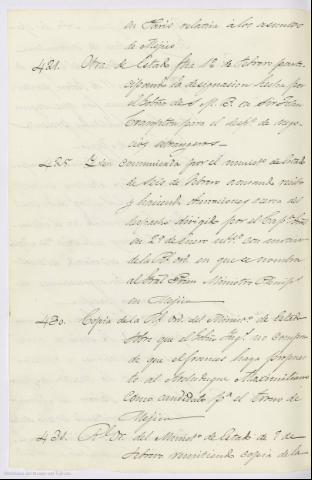 en Paris relativa á los asuntos
de Mejico
421. Otra de Estado fha 12 de Febrero parti-
cipando la designacion hecha por
el Gobno de S. M. B. en Sir John
Crampton para el desp.º de nego-
cios estrangeros.
425. Idem comunicada por el minist.º de Estado
de seis de Febrero acusando recibo
y haciendo aclaraciones acerca del
despacho dirigido por el
en 29 de Enero ult.º con motivo
de la Rl. ord. en que se nombra
al Gral Prim Ministro Plenip.º
en Mejico
430. Copia de la Rl. Ord. del Minist.º de Estado
sobre que el Gobno Ing.s no compren
de que el frances haya propues
to al Archiduque Maximiliano
como candidato p.ª el trono de
Mejico
431. Rl. O. del Minist.º de Estado de 7 de
Febrero remitiendo copia de la